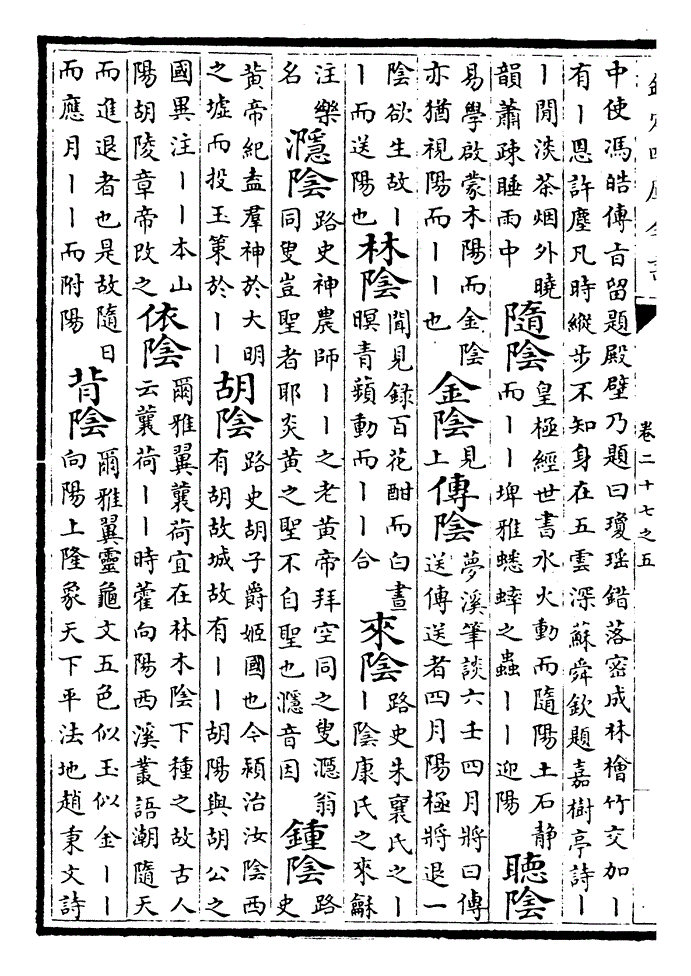 欽定四庫全書
卷二十七之五
中使馮皓傳旨留題殿壁乃題曰瓊瑶錯落密成林檜竹交加丨
有丨恩許塵凡時縱步不知身在五雲深蘇舜欽題嘉樹亭詩丨
丨閒淡茶烟外曉
韻蕭疎睡雨中
隨陰
皇極經世書水火動而隨陽土石静
而丨丨埤雅蟋蟀之蟲丨丨迎陽
聽陰
易學啟蒙木陽而金陰
亦猶視陽而丨丨也
金陰
見
上
傳陰
夢溪筆談六壬四月將曰傳
送傳送者四月陽極將退一
陰欲生故丨
丨而送陽也
林陰
聞見録百花酣而白晝
暝青蘋動而丨丨合
來陰
路史朱襄氏之丨
丨陰康氏之來龢
注樂
名
濦陰
路史神農師丨丨之老黄帝拜空同之叟濦翁
同叟豈聖者耶炎黄之聖不自聖也濦音因
鍾陰
路
史
黄帝紀盍羣神於大明
之墟而投玉策於丨丨
胡陰
路史胡子爵姬國也今潁治汝陰西
有胡故城故有丨丨胡陽與胡公之
國異注丨丨本山
陽胡陵章帝改之
依陰
爾雅翼蘘荷宜在林木陰下種之故古人
云蘘荷丨丨時藿向陽西溪叢語潮隨天
而進退者也是故隨日
而應月丨丨而附陽
背陰
爾雅翼靈龜文五色似玉似金丨丨
向陽上隆象天下平法地趙秉文詩